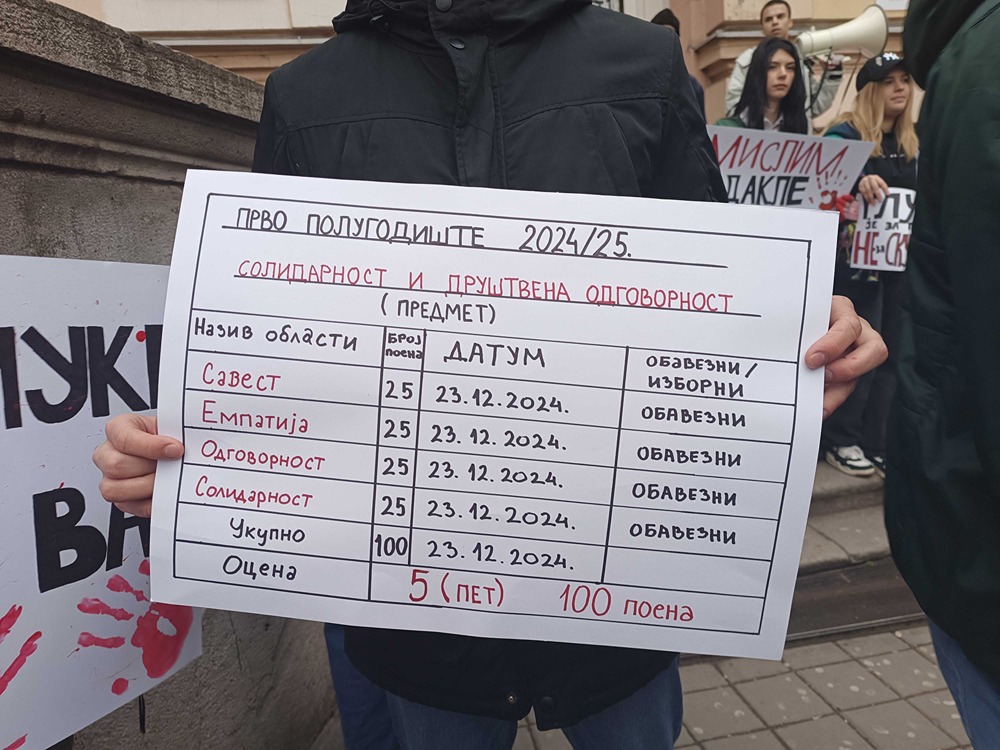 ПРВО ПОЛУГОДИШТЕ 2024/25.
СОЛИДАРНОСТ И ДРУШТВЕНА ОДГОВОРНОСТ
(ПРЕДМЕТ)
Назив области БРОЈ поена ДАТУМ ОБАВЕЗНИ/ИЗБОРНИ
Савест 25 23.12.2024. ОБАВЕЗНИ
Емпатија 25 23.12.2024. ОБАВЕЗНИ
Одговорност 25 23.12.2024. ОБАВЕЗНИ
Солидарност 25 23.12.2024. ОБАВЕЗНИ
Укупно 100 23.12.2024.
Оцена 5 (ПЕТ) 100 поена
МИСЛИМ,
ДАКЛЕ
ЈЕ ЗА
НЕ ЗА